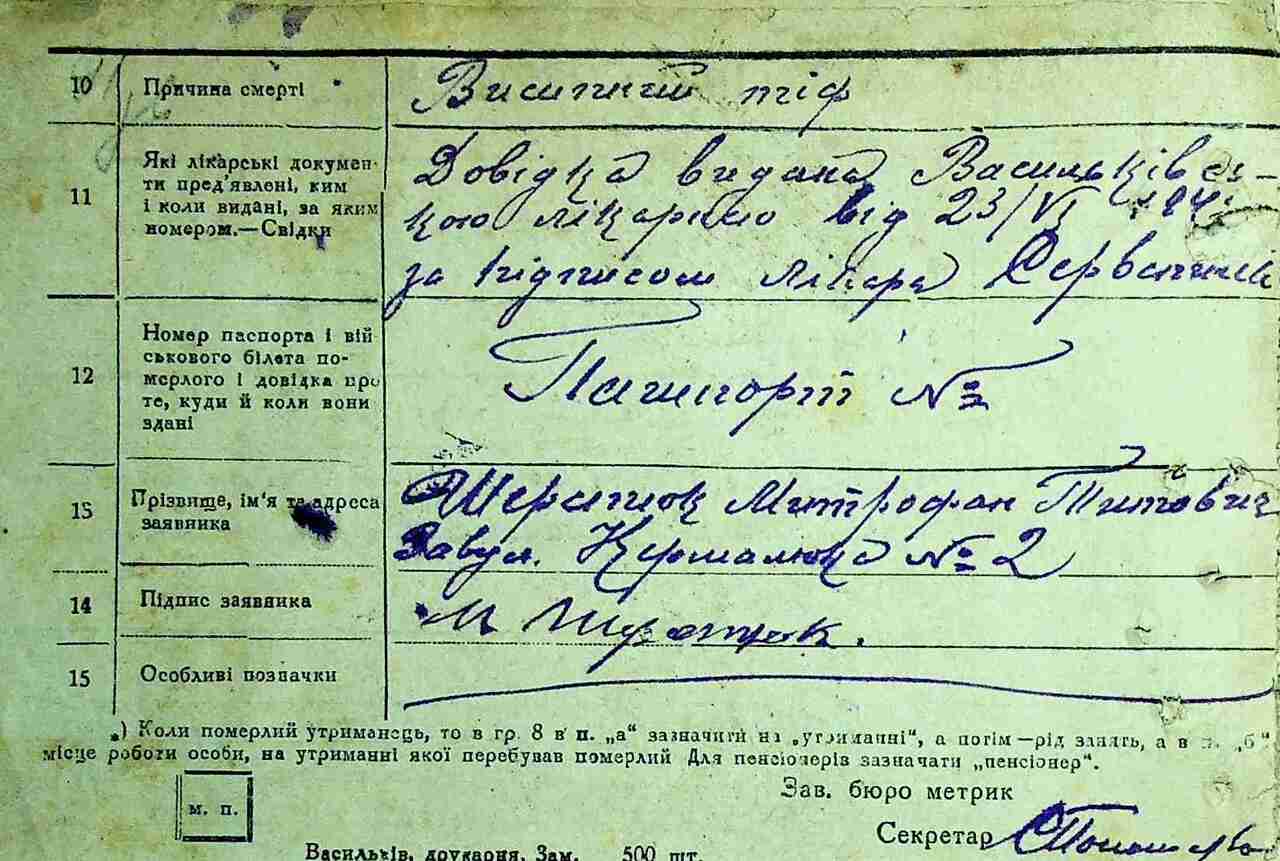 10 Причина смерті Висипний тіф
Які лікарські докумен-
ти пред'явлені, ким
11 і коли видані, за яким
номером.—Свідки
Довідка видана Васильківсь-
кою лікарнею від 23/VI
за підписом лікаря
Номер паспорта і вій
ськового білета по-
12 мерлого і довідка про
те, куди й коли вони
здані
Пашпорт №
13 Прізвище, ім'я та адреса
заявника
Митрофан Титович
вул. Кармалюка № 2
14 Підпис заявника М
15 Особливі позначки
*) Коли померлий утриманець, то в гр. 8 в п. „а“ зазначити на „утриманні“, а потім—рід занять, а в п. „б“
місце роботи особи, на утриманні якої перебував померлий Для пенсіонерів зазначати „пенсіонер“.
м. п.
Зав. бюро метрик
Секретар
Васильків, друкарня. Зам. 500 шт.